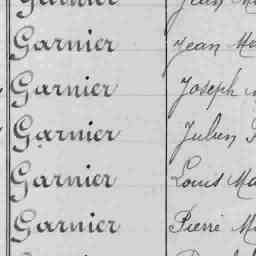 Garnier
Garnier Jean
Garnier Joseph
Garnier Julien
Garnier Louis
Garnier Pierre